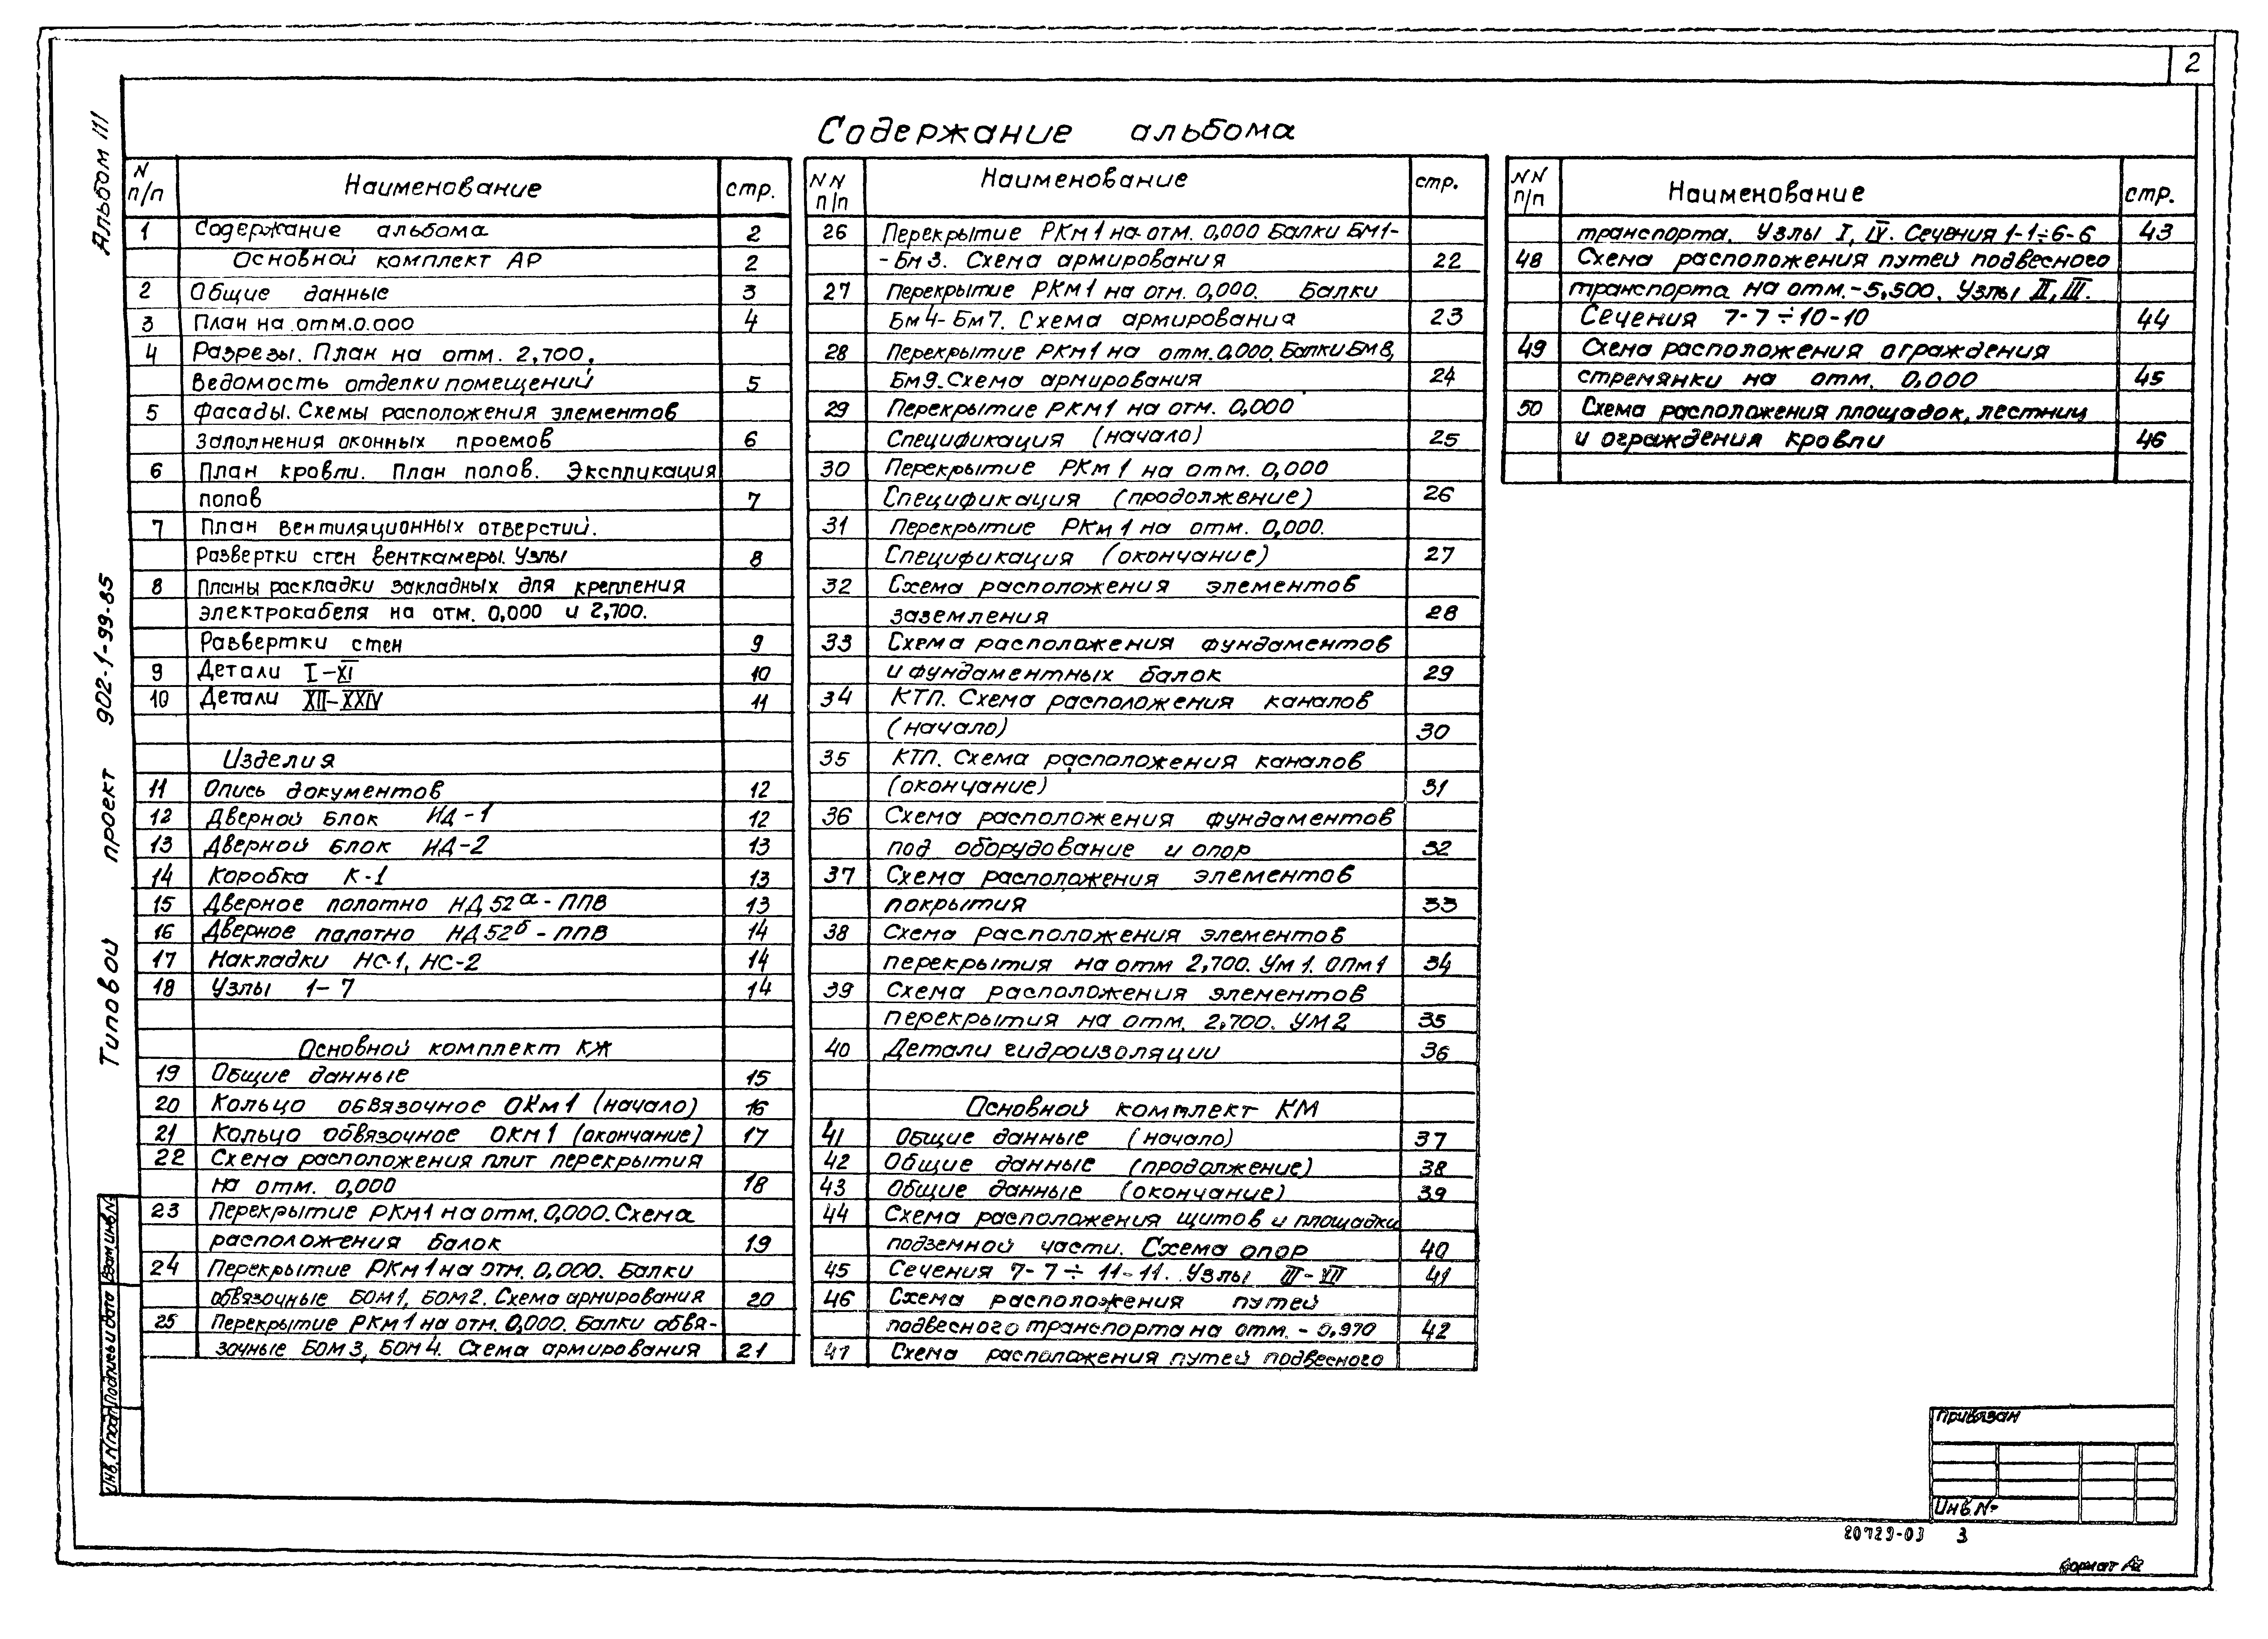 2
Альбом III
Типовой проект 902-1-99-85
Содержание альбома
N п/п Наименование стр.
1 Содержание альбома 2
Основной комплект АР 2
2 Общие данные 3
3 План на отм. 0.000 4
4 Разрезы. План на отм. 2,700,
Ведомость отделки помещений 5
5 Фасады. Схемы расположения элементов
заполнения оконных проемов 6
6 План кровли. План полов. Экспликация
полов 7
7 План вентиляционных отверстий.
Развертки стен венткамеры. Узлы 8
8 Планы раскладки закладных для крепления
электрокабеля на отм. 0,000 и 2,700.
Развертки стен 9
9 Детали I-XI 10
10 Детали XII-XXIV 11
Изделия
11 Опись документов 12
12 Дверной блок НД-1 12
13 Дверной блок НД-2 13
14 Коробка К-1 13
15 Дверное полотно НД52а-ППВ 13
16 Дверное полотно НД52б-ППВ 14
17 Накладки НС-1, НС-2 14
18 Узлы 1-7 14
Основной комплект КЖ
19 Общие данные 15
20 Кольцо обвязочное ОКм1 (начало) 16
21 Кольцо обвязочное ОКм1 (окончание) 17
22 Схема расположения плит перекрытия
на отм. 0,000 18
23 Перекрытие РКм1 на отм. 0,000. Схема
расположения балок 19
24 Перекрытие РКм1 на отм. 0,000. Балки
обвязочные БОМ1, БОМ2. Схема армирования 20
25 Перекрытие РКм1 на отм. 0,000. Балки обвя-
зочные БОМ3, БОМ4. Схема армирования 21
NN п/п Наименование стр.
26 Перекрытие РКм1 на отм. 0,000 Балки БМ1-
-Бм3. Схема армирования 22
27 Перекрытие РКм1 на отм. 0,000. Балки
Бм4-Бм7. Схема армирования 23
28 Перекрытие РКм1 на отм. 0,000. Балки Бм8,
Бм9. Схема армирования 24
29 Перекрытие РКм1 на отм. 0,000
Спецификация (начало) 25
30 Перекрытие РКм1 на отм. 0,000
Спецификация (продолжение) 26
31 Перекрытие РКм1 на отм. 0,000.
Спецификация (окончание) 27
32 Схема расположения элементов
заземления 28
33 Схема расположения фундаментов
и фундаментных балок 29
34 КТП. Схема расположения каналов
(начало) 30
35 КТП. Схема расположения каналов
(окончание) 31
36 Схема расположения фундаментов
под оборудование и опор 32
37 Схема расположения элементов
покрытия 33
38 Схема расположения элементов
перекрытия на отм 2,700. Ум1. ОПм1 34
39 Схема расположения элементов
перекрытия на отм. 2,700. УМ2 35
40 Детали гидроизоляции 36
Основной комплект КМ
41 Общие данные (начало) 37
42 Общие данные (продолжение) 38
43 Общие данные (окончание) 39
44 Схема расположения щитов и площадки
подземной части. Схема опор 40
45 Сечения 7-7÷11-11. Узлы III-VII 41
46 Схема расположения путей
подвесного транспорта на отм. -0,970 42
47 Схема расположения путей подвесного
NN п/п Наименование стр.
транспорта. Узлы I, IV. Сечения 1-1÷6-6 43
48 Схема расположения путей подвесного
транспорта на отм. -5,500. Узлы II, III.
Сечения 7-7÷10-10 44
49 Схема расположения ограждения
стремянки на отм. 0,000 45
50 Схема расположения площадок, лестниц
и ограждения кровли 46
Взам инв N
Подпись и дата
Инв. N подл
Привязан
Инв. №
20729-03 3
Формат А2